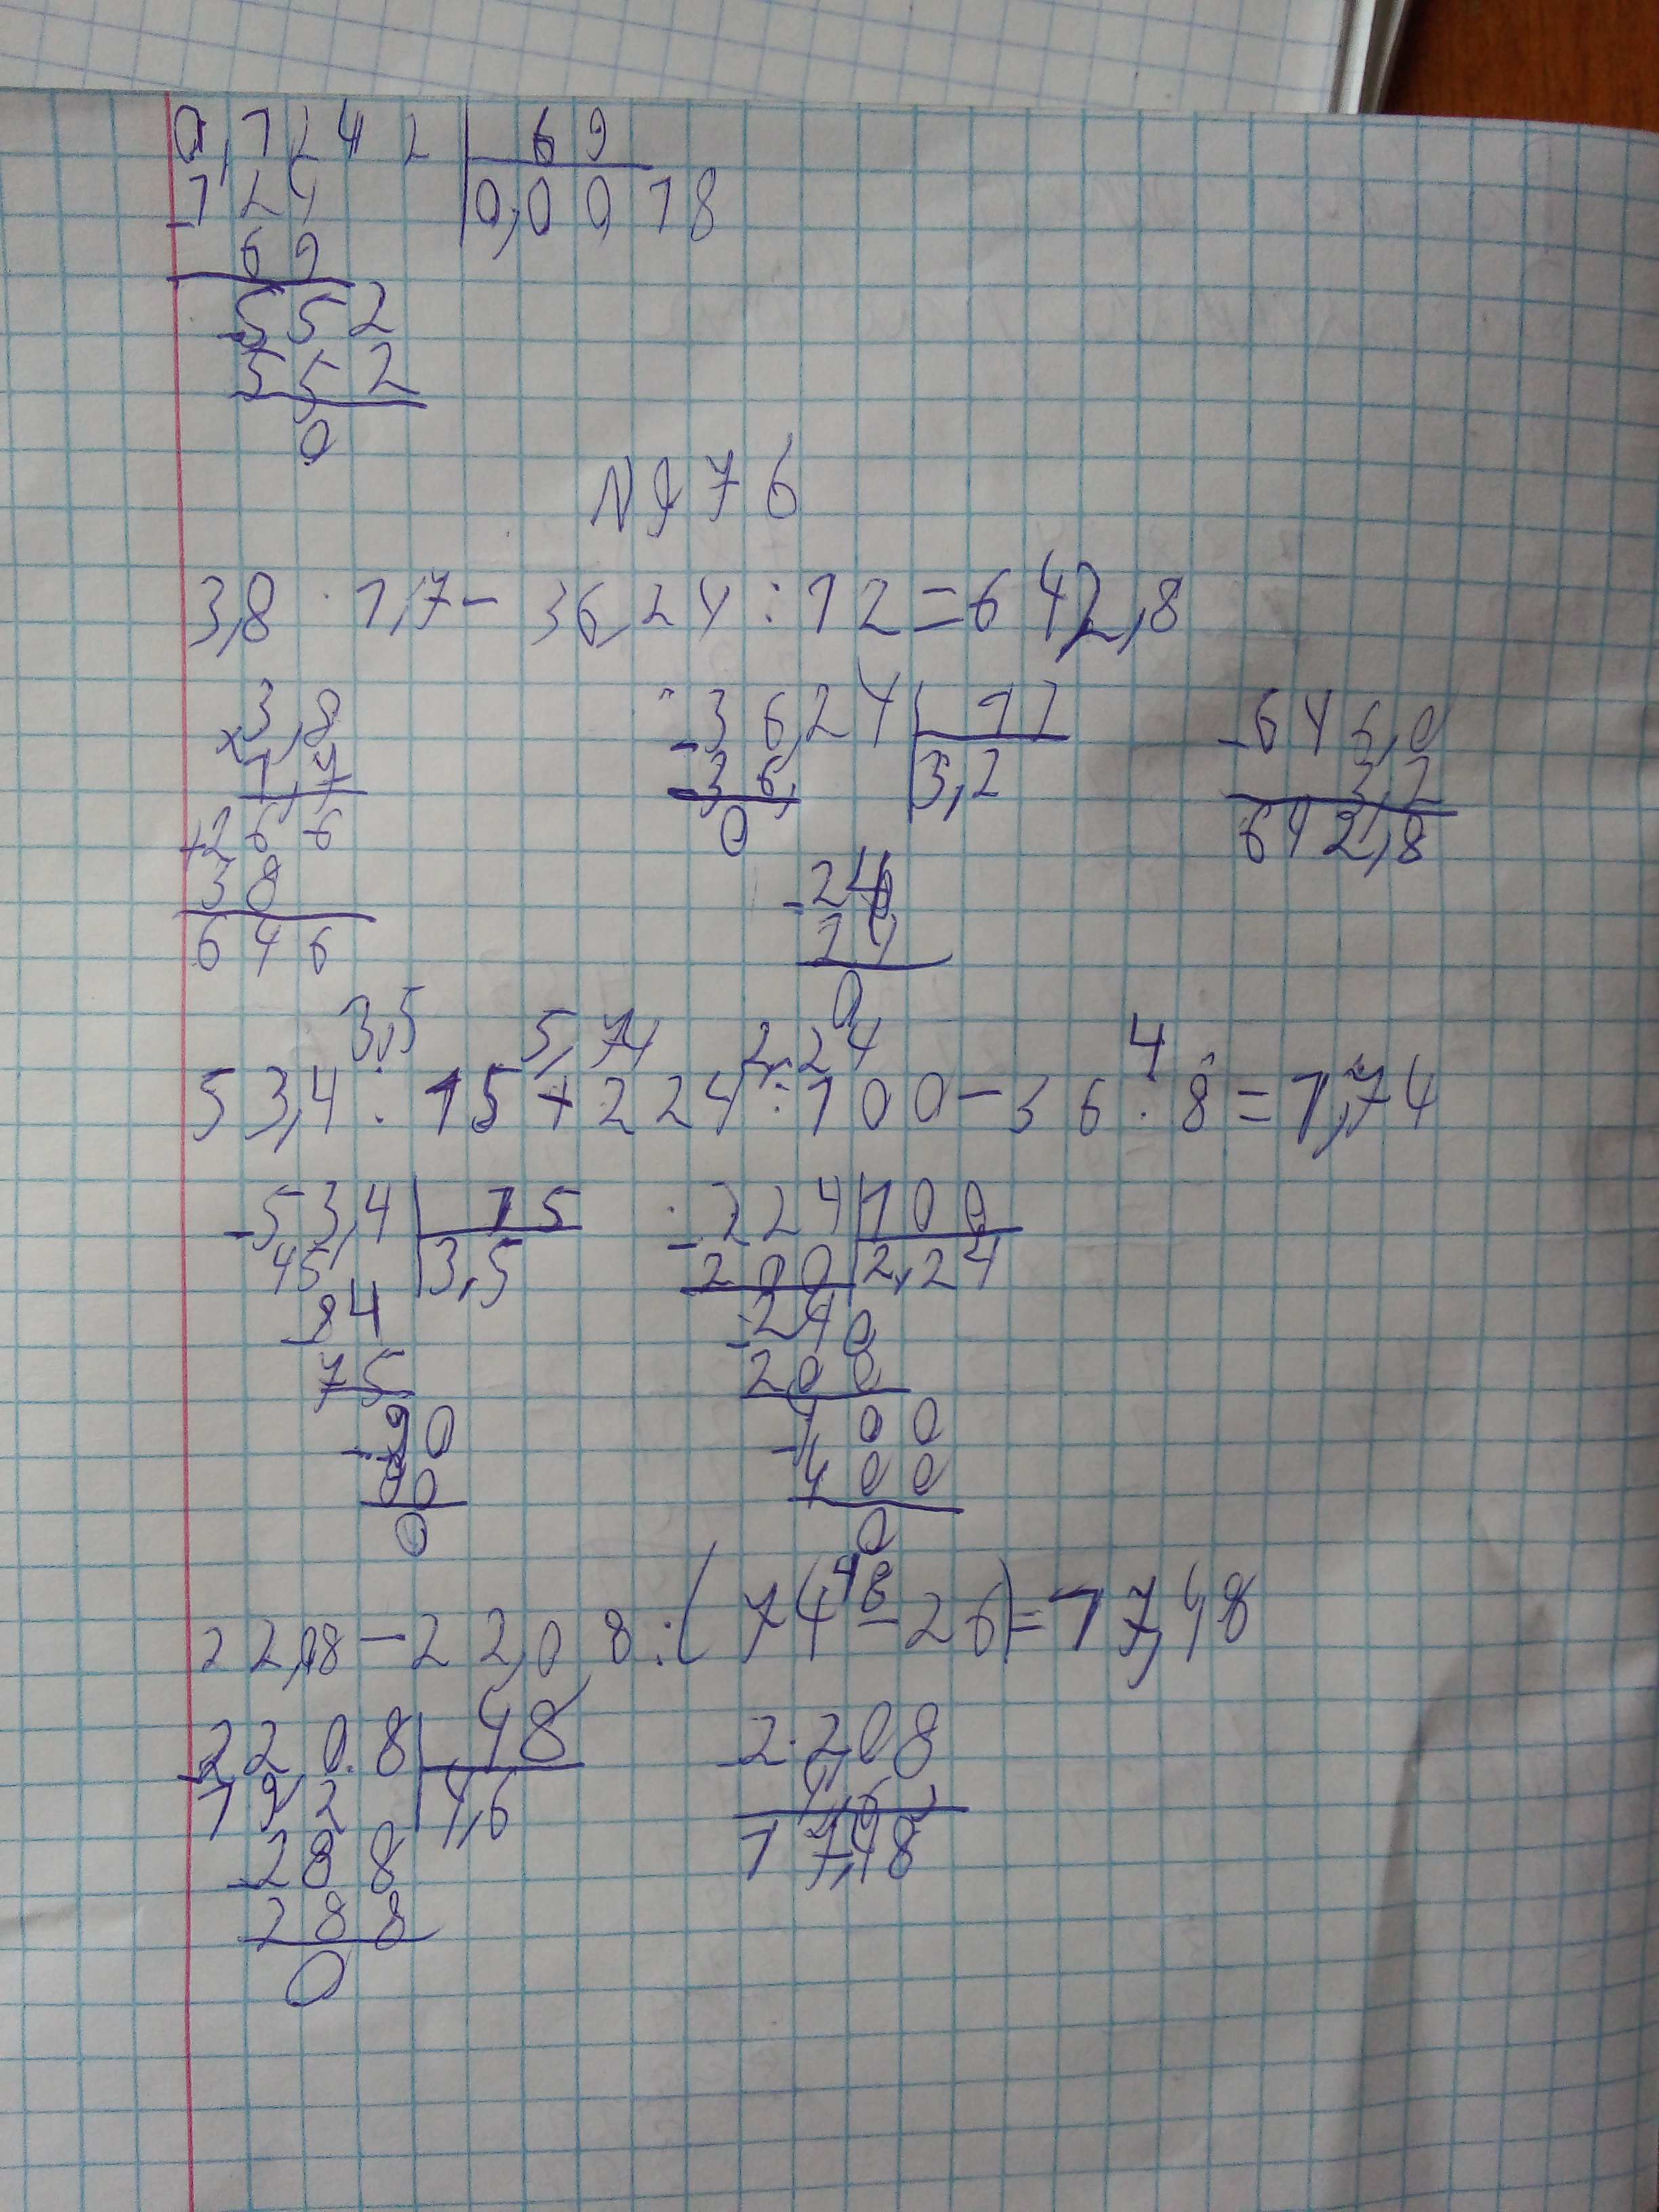 0,1242 | 69
-124 | 0,0018
69
-552
552
0
N976
3,8 · 1,7 - 36,24 : 12 = 642,8
×3,8
1,7
+266
38
646
-36,24 | 12
-36, | 3,2
0
-24
24
0
-646,0
3,2
642,8
3,5 5,74 2,24 4
53,4 : 15 + 224 : 100 - 36 : 8 = 1,74
-53,4 | 15
45 | 3,5
-84
75
-90
90
0
-224 | 100
200 | 2,24
-240
200
-400
400
0
48
22,08 - 22,08 : (74 - 26) = 17,48
-220.8 | 48
192 | 4,6
-288
288
0
-2208
4,6
17,48